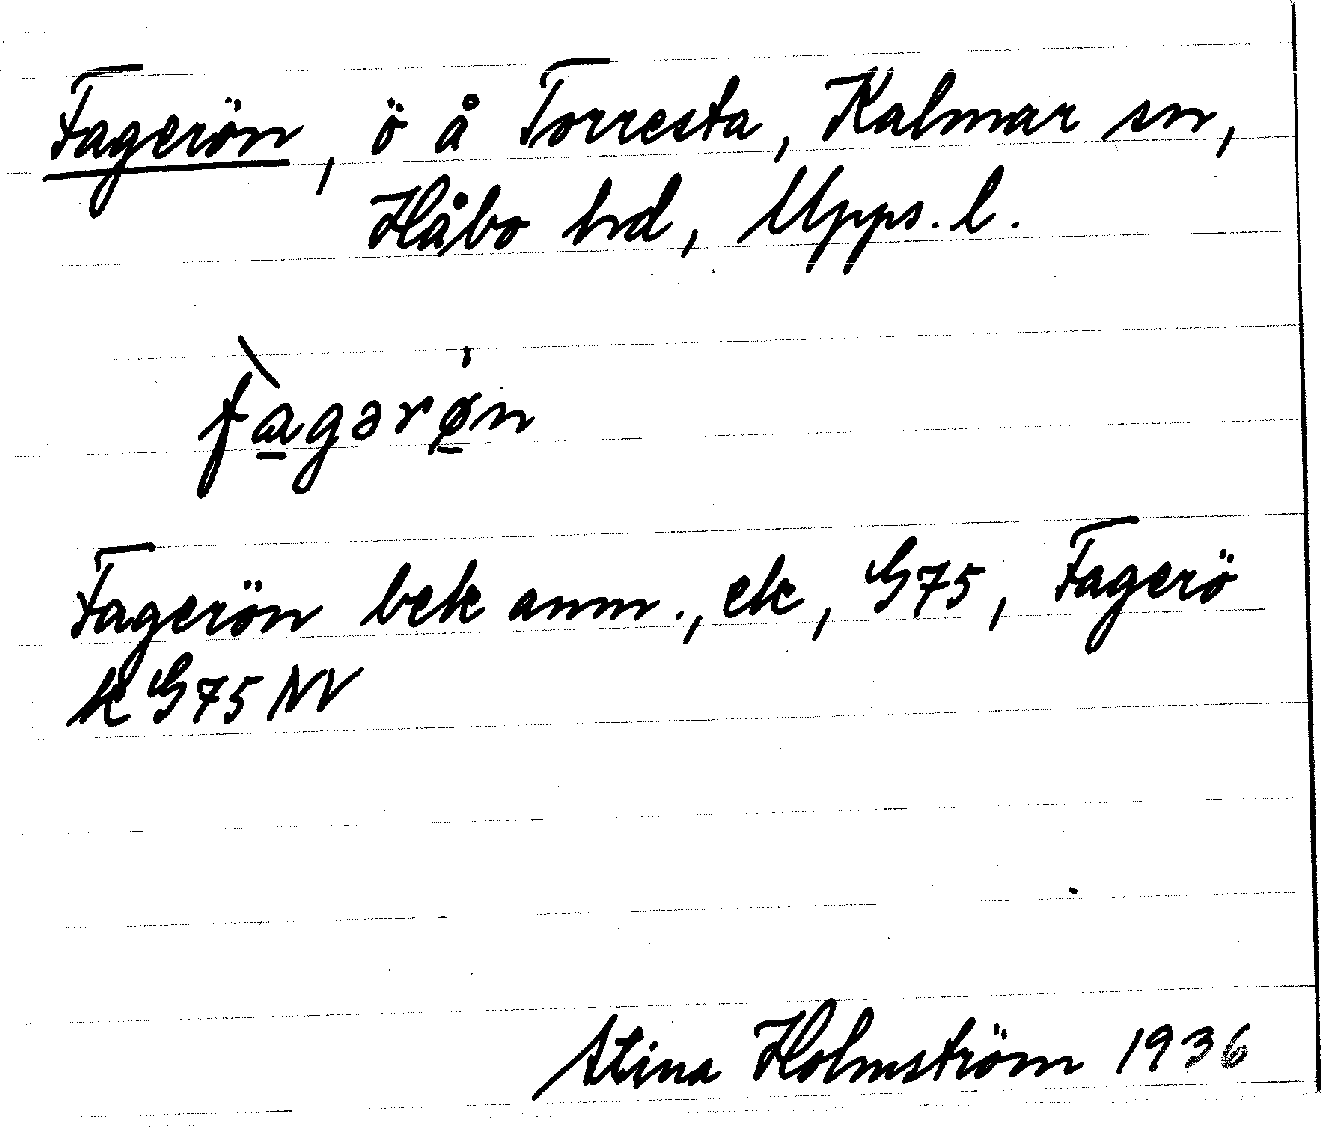 Fagerön, ö å Torresta, Kalmar sn,
Håbo hd, Upps. l.
fàgərø̍n
Fagerön bek anm., ek, G75, Fagerö
k G75 NV
Stina Holmström 1936